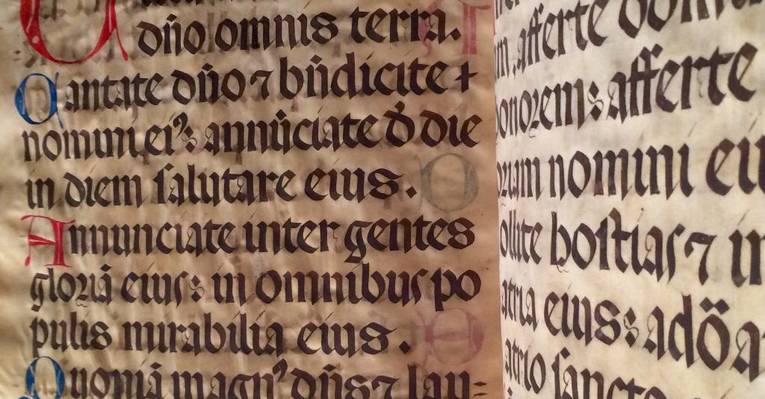 dn̄o omnis terra.
Cantate dn̄o ⁊ bn̄dicite +
nomini ei⁹: annūciate d̄ die
in diem salutare eius.
Annunciate inter gentes
gloriā eius: in omnibus po
pulis mirabilia eius.
Quoniā magn⁹ dn̄s ⁊ lau=
afferte
honorem: afferte
nomini eiu
ollite hostias ⁊ in
atria eius: adōa
atrio sancto